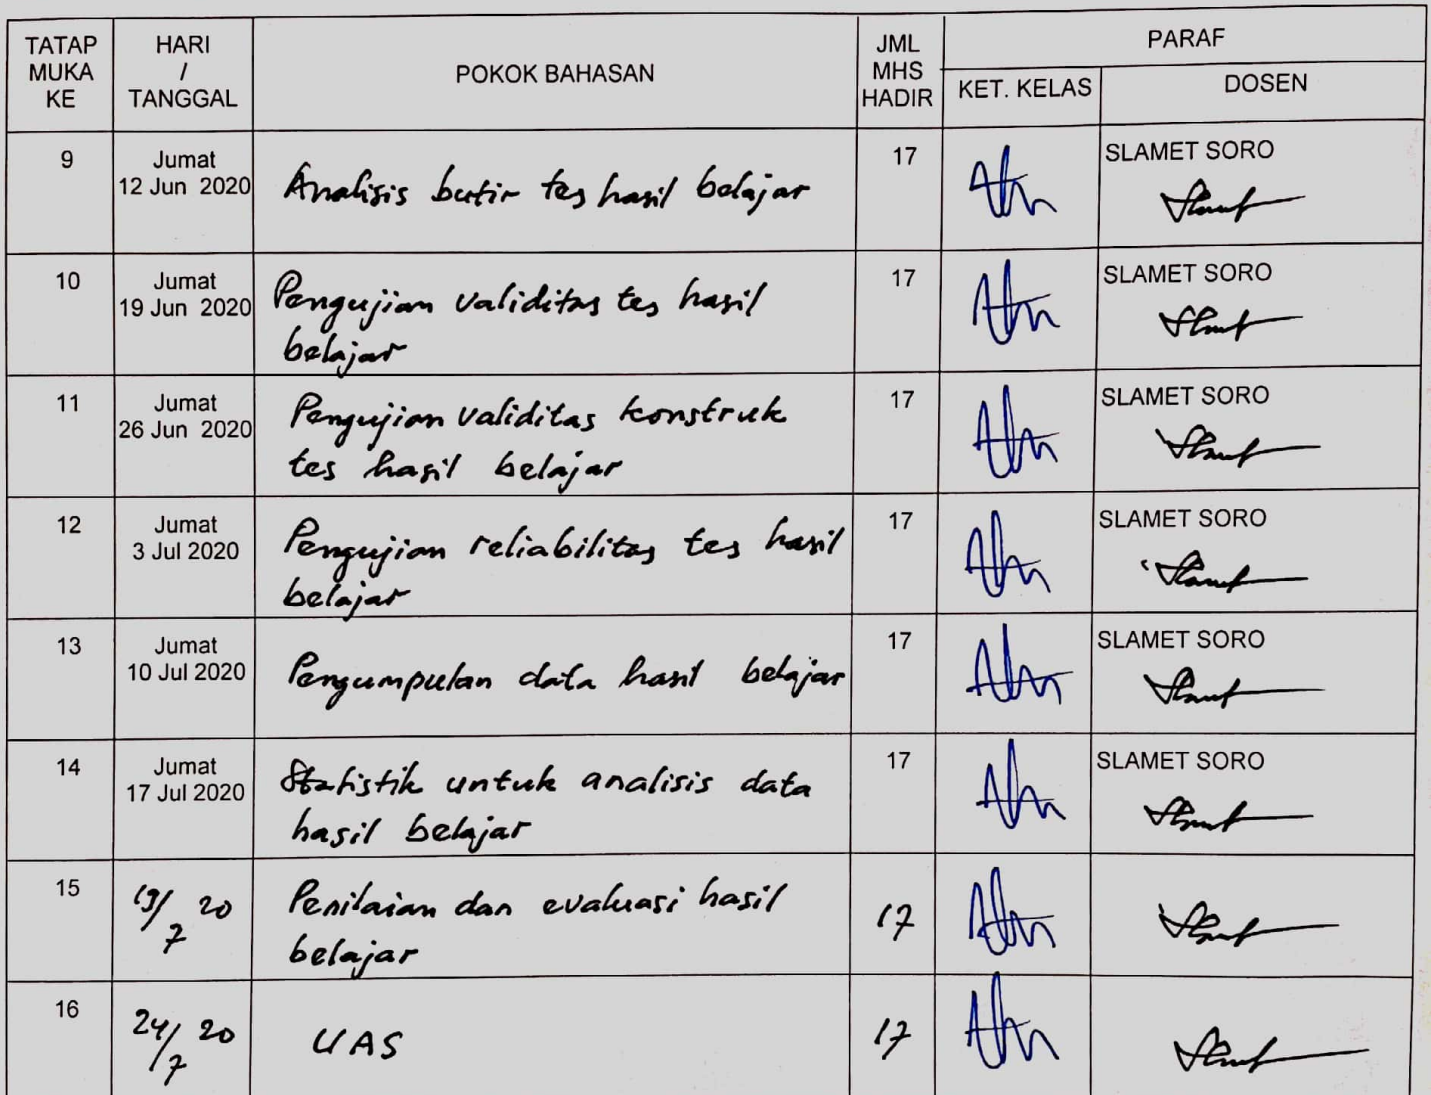 TATAP MUKA KE
HARI / TANGGAL
POKOK BAHASAN
JML MHS HADIR
PARAF
KET. KELAS
DOSEN
9
Jumat
12 Jun 2020
Analisis butir tes hasil belajar
17
SLAMET SORO
10
Jumat
19 Jun 2020
Pengujian validitas tes hasil
belajar
17
SLAMET SORO
11
Jumat
26 Jun 2020
Pengujian validitas konstruk
tes hasil belajar
17
SLAMET SORO
12
Jumat
3 Jul 2020
Pengujian reliabilitas tes hasil
belajar
17
SLAMET SORO
13
Jumat
10 Jul 2020
Pengumpulan data hasil belajar
17
SLAMET SORO
14
Jumat
17 Jul 2020
Statistik untuk analisis data
hasil belajar
17
SLAMET SORO
15
19/7 20
Penilaian dan evaluasi hasil
belajar
17
16
24/7 20
UAS
17